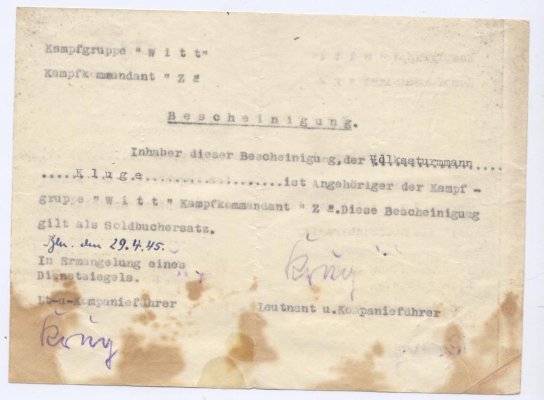 Kampfgruppe "Witt"
Kampfkommandant "Z"
Bescheinigung.
Inhaber dieser Bescheinigung, der Volkssturmmann....
....Kluge..................ist Angehöriger der Kampf -
gruppe "Witt" Kampfkommandant "Z".Diese Bescheinigung
gilt als Soldbuchersatz.
Bln. den 29.4.45.
In Ermangelung eines
Dienstsiegels.
Krug
Lt-u-Kompanieführer
Leutnant u.Kompanieführer
Krug